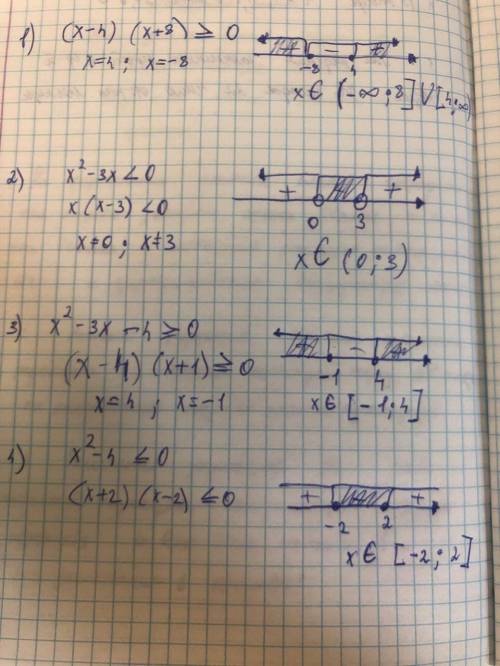 1) (x-4) (x+8) ≥ 0
x=4 ; x=-8
-
-8 4
x ∈ (-∞; 8] V [4; ∞)
2) x²-3x<0
x (x-3) <0
x≠0 ; x≠3
+ +
0 3
x ∈ (0; 3)
3) x²-3x-4 ≥ 0
(x-4) (x+1) ≥ 0
x=4 , x=-1
-
-1 4
x ∈ [-1; 4]
4) x²-4 ≤ 0
(x+2) (x-2) ≤ 0
+ +
-2 2
x ∈ [-2; 2]